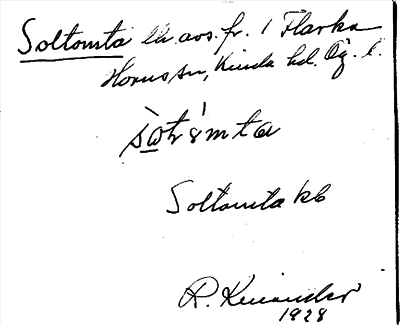 Soltomta lh. avs. fr. 1 Flarka
Horns sn, Kinda hd. Ög. l.
Soltomta kb
R. Kinander
1928